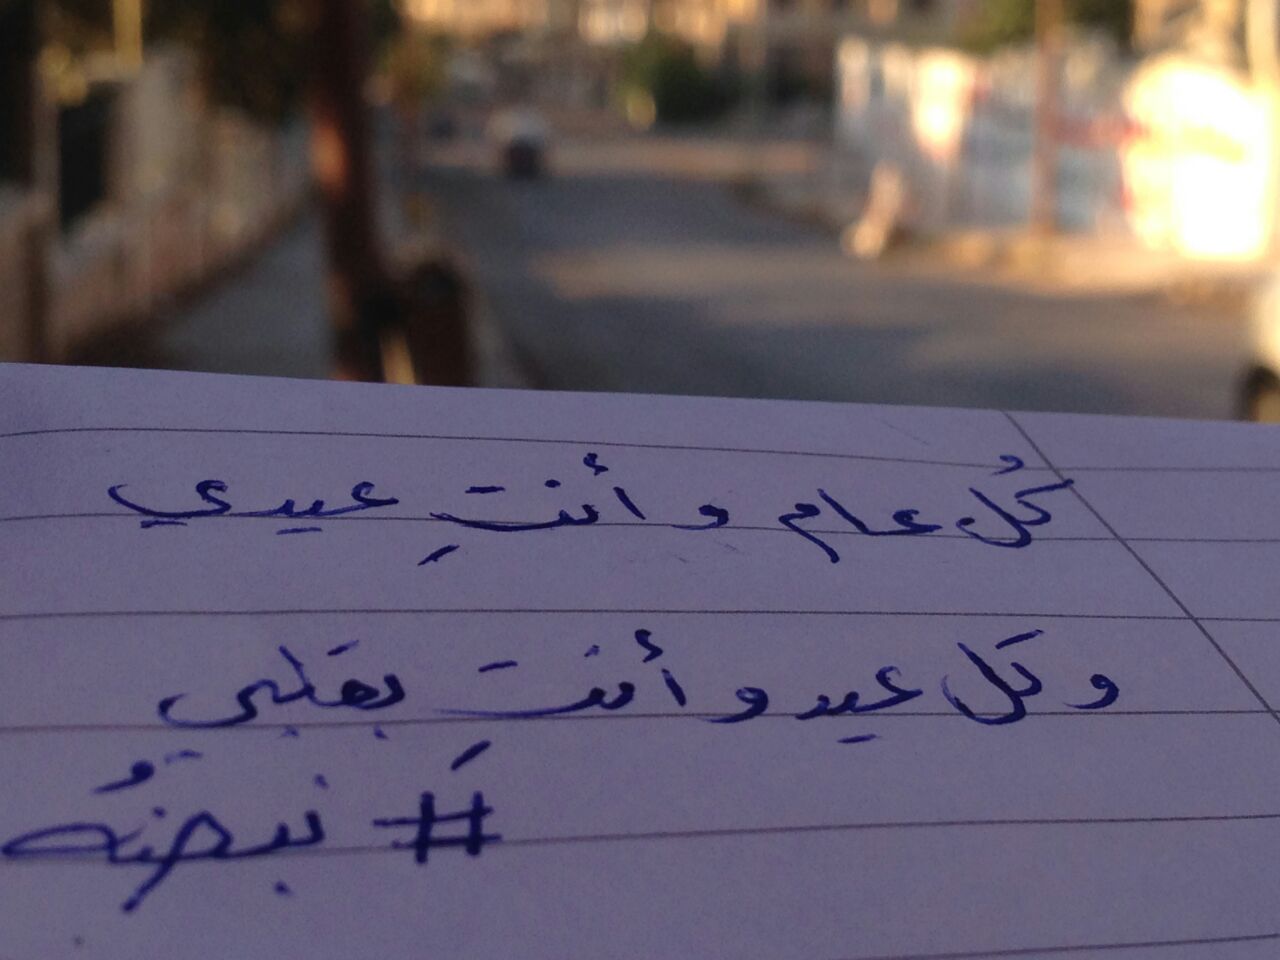 كُل عام و أنتِ عيدي
و كَل عيد و أنتِ بقلبي
# نبضهُ